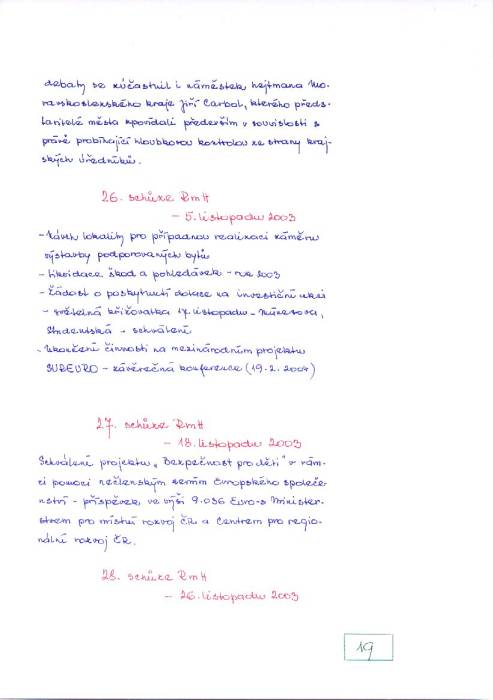 debaty se zúčastnil i náměstek hejtmana Mo-
ravskoslezského kraje Jiří Carbol, kterého předs-
tavitelé města zpovídali především v souvislosti s
právě probíhající hloubkovou kontrolou ze strany kraj-
ských úředníků.
26. schůze RmH
- 5. listopadu 2003
- Návrh lokality pro případnou realizaci záměru
výstavby podporovaných bytů
- Likvidace škod a pohledávek - rok 2003
- Žádost o poskytnutí dotace na investiční akci
- světelná křižovatka 17. listopadu -
Studentská - schválení
- Ukončení činnosti na mezinárodním projektu
SUREURO - závěrečná konference (19.2.2004)
27. schůze RmH
- 18. listopadu 2003
Schválení projektu „Bezpečnost pro děti" v rám-
ci pomoci nečlenským zemím Evropského společe-
nství - příspěvek ve výši 9.036 Euro-s Minister-
stvem pro místní rozvoj ČR a Centrem pro regio-
nální rozvoj ČR.
28. schůze RmH
- 26. listopadu 2003
19